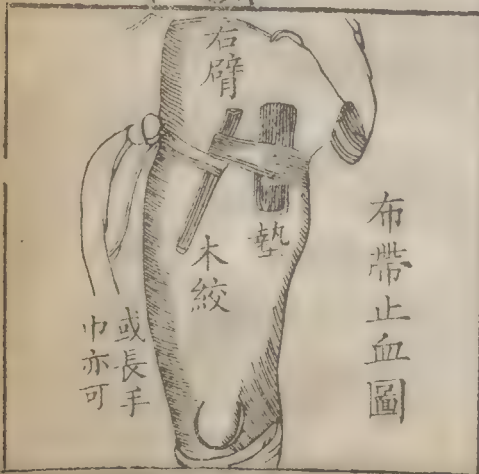 布帶止血圖
右臂
墊
木絞
或長手
巾亦可